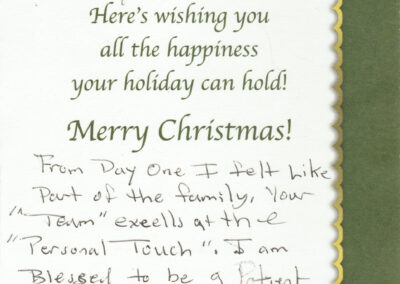 Here's wishing you
all the happiness
your holiday can hold!
Merry Christmas!
From Day One I felt Like
Part of the family, Your
"Team" excells at the
"Personal Touch". I am
Blessed to be a Patient